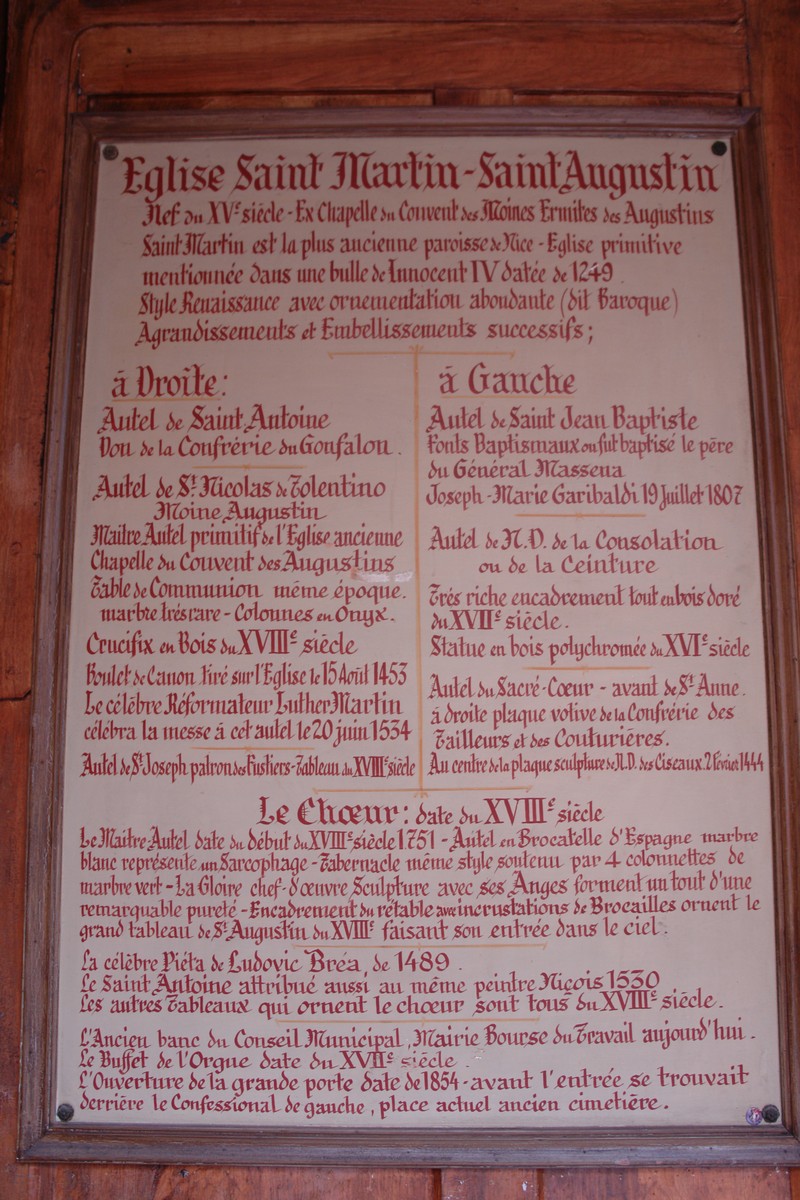 Eglise Saint Martin-Saint Augustin
Nef du XVe siécle - Ex Chapelle du Couvent des Moines Ermites des Augustins
Saint Martin est la plus ancienne paroisse de Nice - Eglise primitive
mentionnée dans une bulle de Innocent IV datée de 1249
Style Renaissance avec ornementation abondante (dit Baroque)
Agrandissements et Embellissements successifs;
á Droite:
Autel de Saint Antoine
Don de la Confrérie du Gonfalon.
Autel de St Nicolas de Tolentino
Moine Augustin
Maitre Autel primitif de l'Eglise ancienne
Chapelle du Couvent des Augustins
Table de Communion même époque.
marbre trés rare - Colonnes en Onyx.
Crucifix en Bois du XVIIIe siécle
Boulet de Canon tiré sur l'Eglise le 15 Août 1453
Le célébre Réformateur Luther Martin
célébra la messe á cet autel le 20 juin 1534
Autel de St Joseph patron des Fustiers-Tableau du XVIIIe siécle
á Gauche
Autel de Saint Jean Baptiste
Fonts Baptismaux ou fut baptisé le pére
du Général Massena
Joseph-Marie Garibaldi 19 Juillet 1807
Autel de N.D. de la Consolation
ou de la Ceinture
Trés riche encadrement tout en bois doré
du XVIIe siécle.
Statue en bois polychromée du XVIe siécle
Autel du Sacré-Cœur - avant de Ste Anne.
á droite plaque votive de la Confrérie des
Tailleurs et des Couturiéres.
Au centre de la plaque sculpture de N.D. des Ciseaux. 2 Février 1444
Le Chœur: date du XVIIIe siécle
Le Maitre Autel date du début du XVIIIe siécle 1751 - Autel en Brocatelle d'Espagne marbre
blanc représente un Sarcophage - Tabernacle même style soutenu par 4 colonnettes de
marbre vert - La Gloire chef-d'œuvre Sculpture avec ses Anges forment un tout d'une
remarquable pureté - Encadrement du rétable avec incrustations de Brocailles ornent le
grand tableau de St Augustin du XVIIIe faisant son entrée dans le ciel.
La célébre Piéta de Ludovic Bréa, de 1489.
Le Saint Antoine attribué aussi au même peintre Niçois 1530.
Les autres Tableaux qui ornent le chœur sont tous du XVIIIe siécle.
L'Ancien banc du Conseil Municipal, Mairie Bourse du Travail aujourd'hui.
Le Buffet de l'Orgue date du XVIIe siécle.
L'Ouverture de la grande porte date de 1854 - avant l'entrée se trouvait
derriére le Confessional de gauche, place actuel ancien cimetiére.